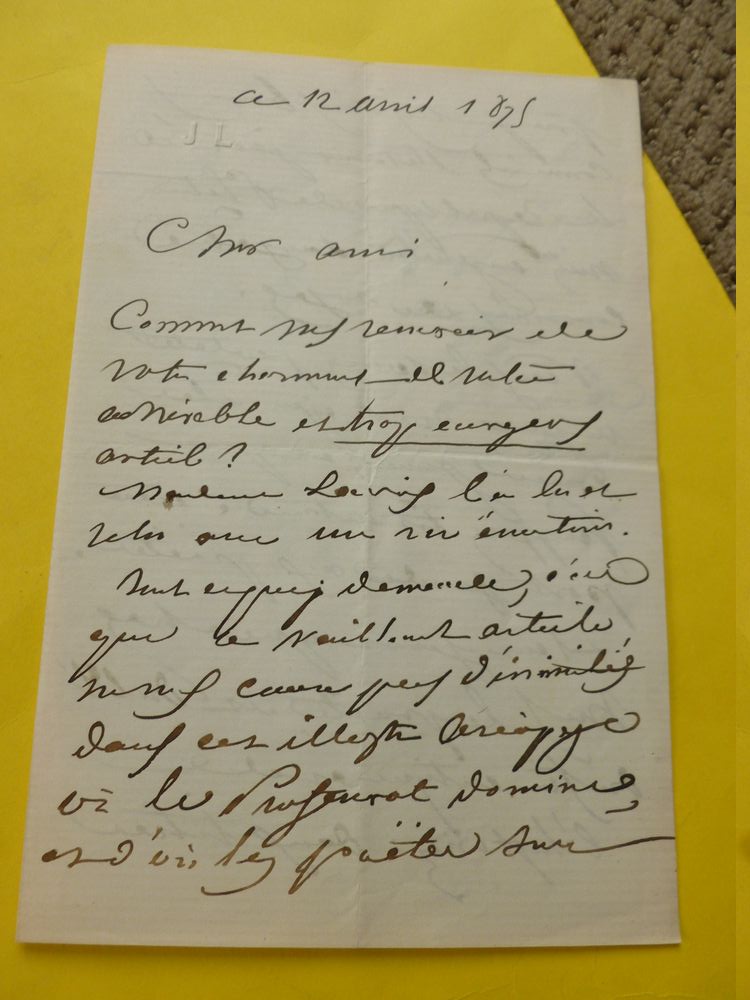 ce 12 avril 1875
J L
Cher ami
Comment vous remercier de
votre charmant et
admirable et trop courageux
article ?
Madame l'a lu et
relu avec une vive émotion.
tout ce que je demande, c'est
que ce vaillant article
ne vous cause pas d'inimitiés
dans cet illustre aréopage
où le Professorat domine,
et d'où les poëtes sont